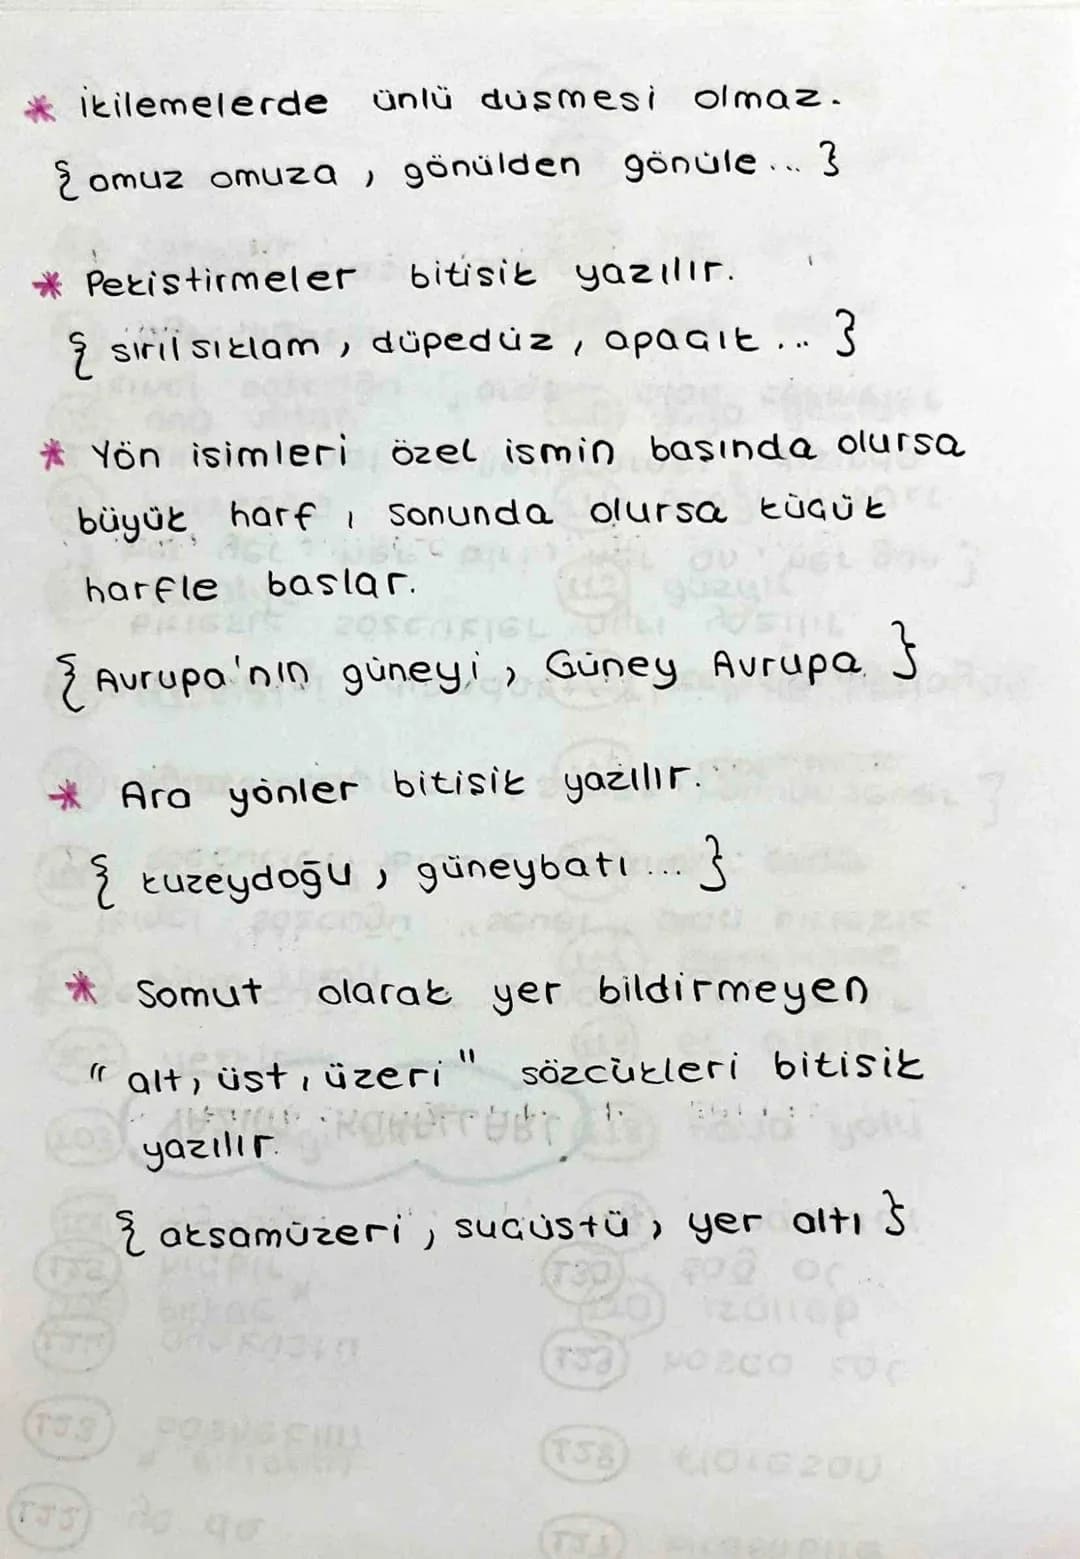 * ikilemelerde ünlü düşmesi olmaz.
{ omuz omuza, gönülden gönüle... }
* Pekiştirmeler bitişik yazılır.
{ sırılsıklam, düpedüz, apaçık... }
* Yön isimleri özel ismin başında olursa
büyük harf, sonunda olursa küçük
harfle başlar.
{ Avrupa'nın güneyi, Güney Avrupa }
* Ara yönler bitişik yazılır.
{ kuzeydoğu, güneybatı... }
* Somut olarak yer bildirmeyen
"alt, üst, üzeri" sözcükleri bitişik
yazılır.
{ akşamüzeri, suçüstü, yer altı }